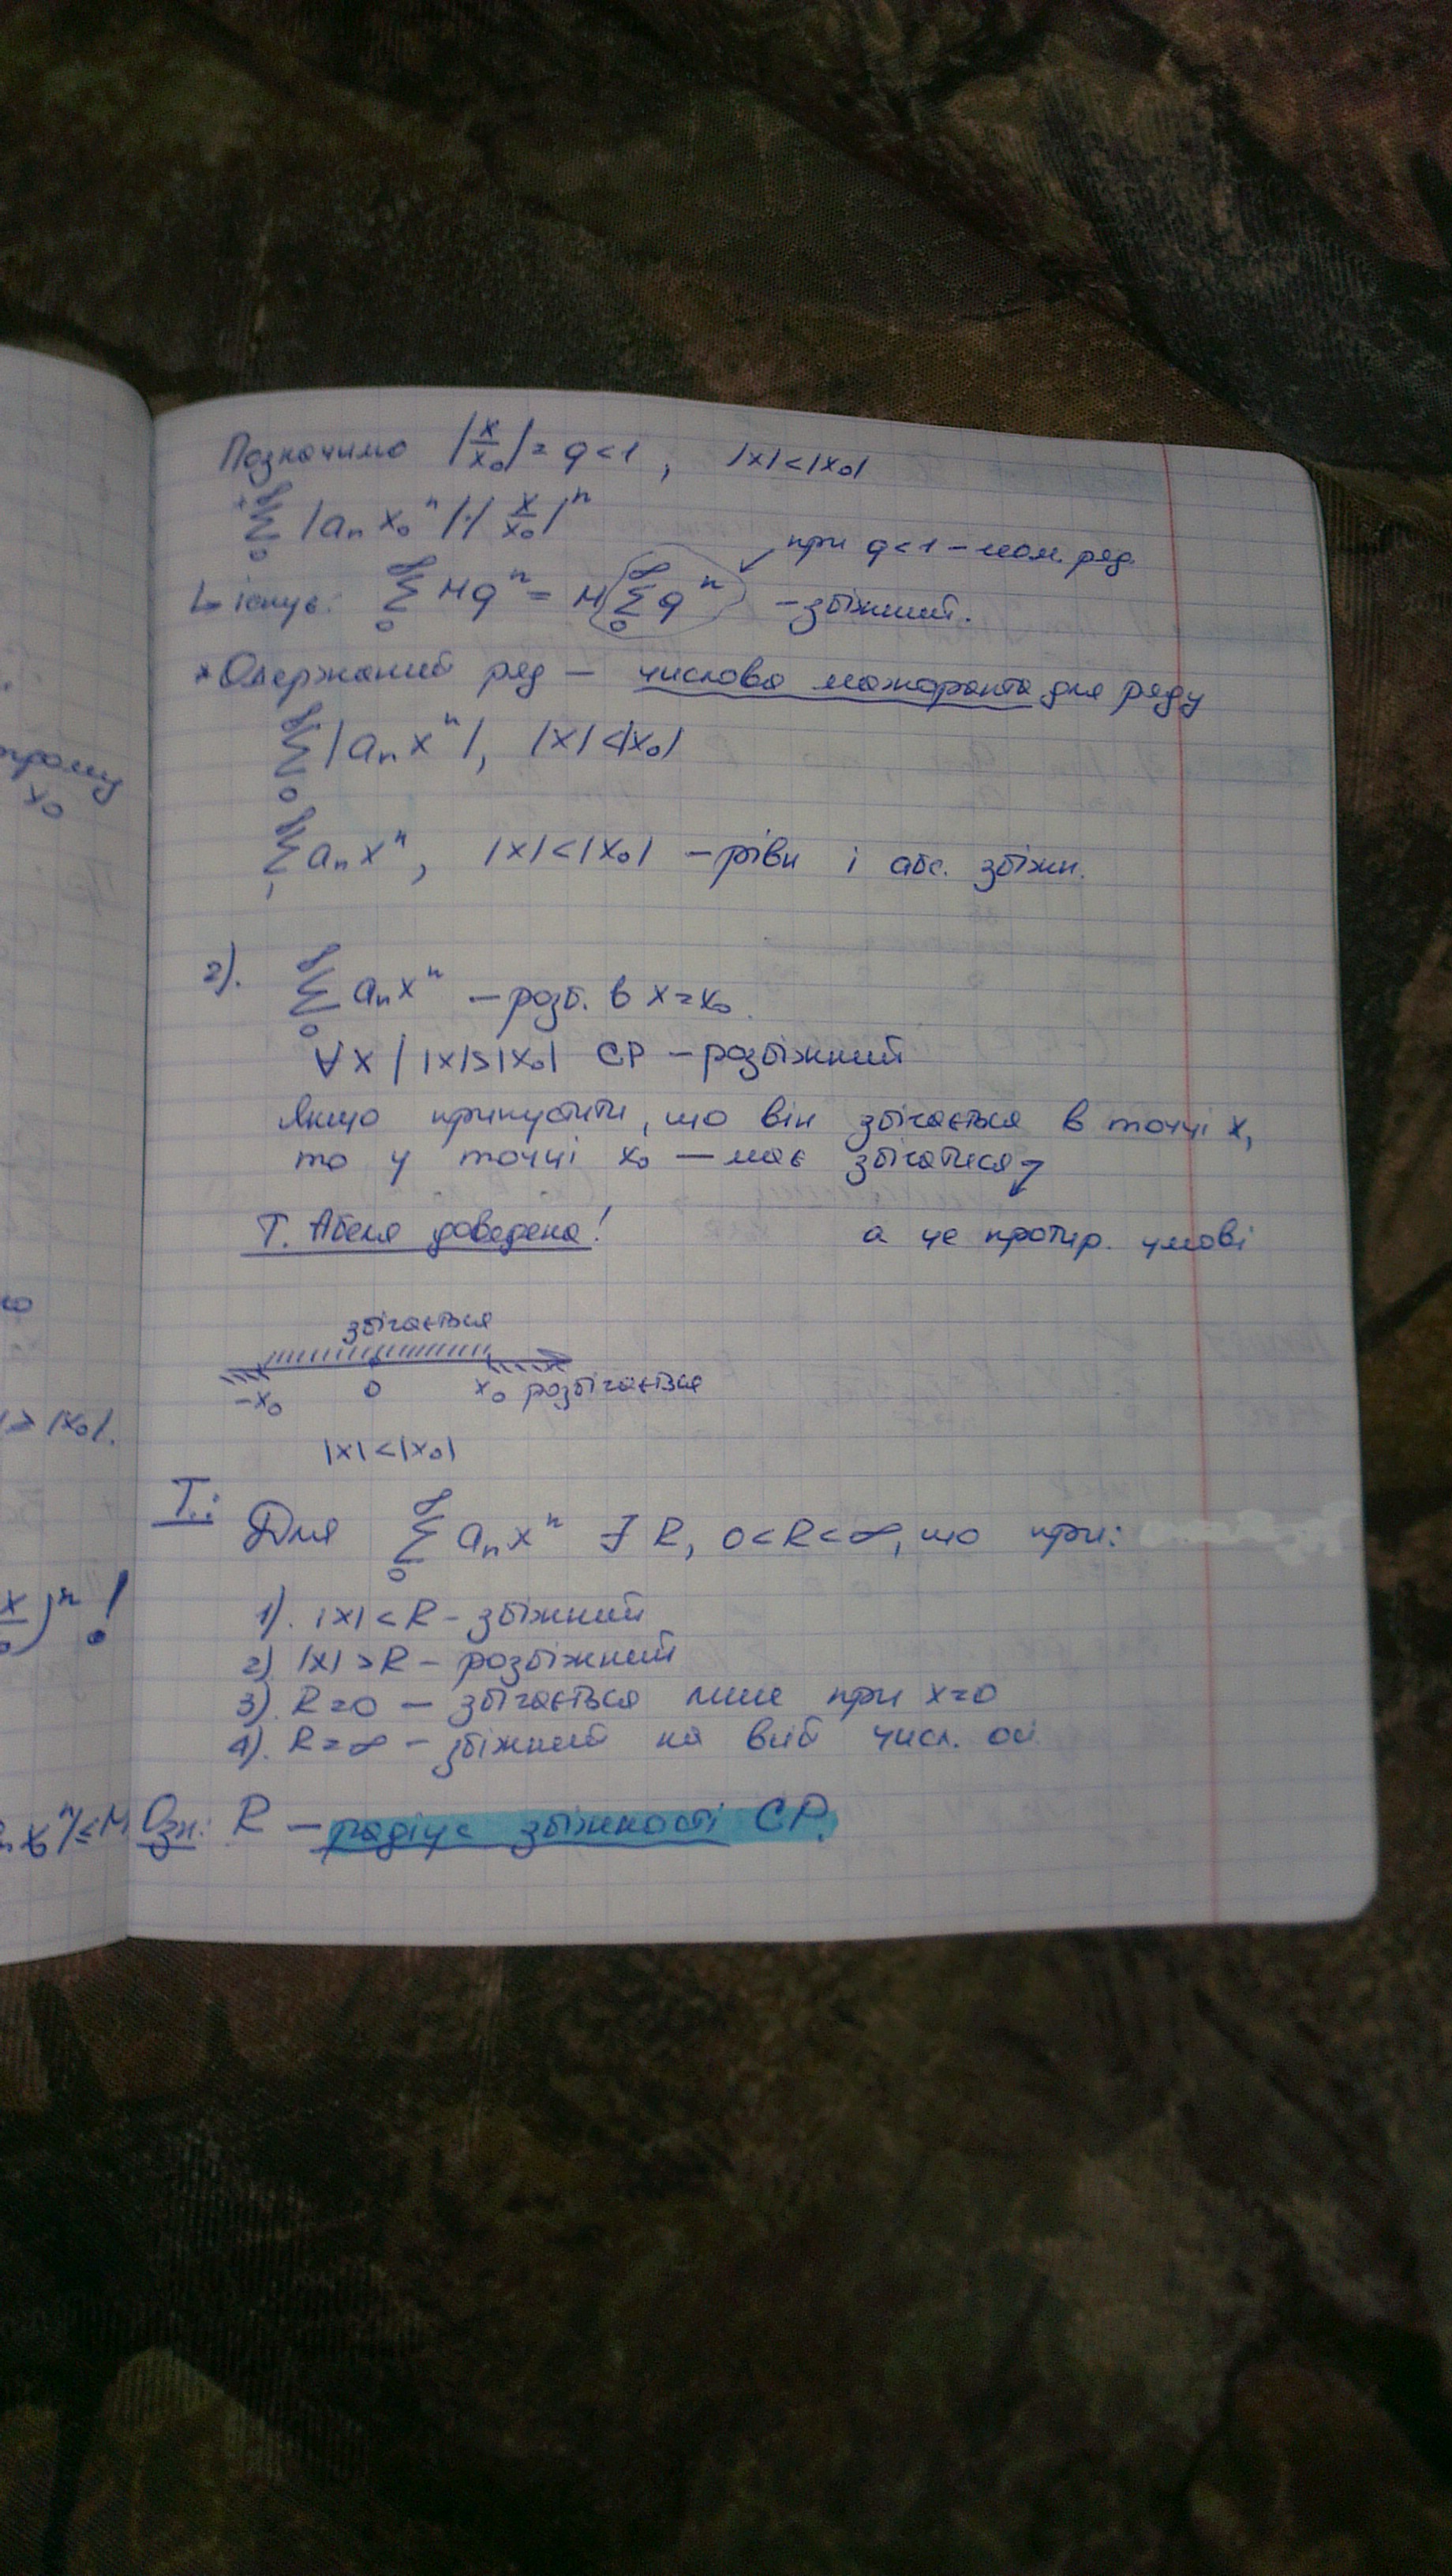 Позначимо |x/x₀| = q < 1, |x| < |x₀|
* ∞ Σ 0 |aₙ x₀ⁿ| · |x/x₀|ⁿ
при q < 1 – геом. ряд
↳ існує: ∞ Σ 0 Mqⁿ = M ∞ Σ 0 qⁿ – збіжний.
* Одержаний ряд – числова мажоранта для ряду
∞ Σ 0 |aₙ xⁿ|, |x| < |x₀|
∞ Σ 1 aₙ xⁿ, |x| < |x₀| – рівн і абс. збіжн.
2). ∞ Σ 0 aₙ xⁿ – розб. в x = x₀.
∀x | |x| > |x₀| СР – розбіжний
Якщо припустити, що він збігається в точці x,
то у точці x₀ – має збігатися
Т. Абеля доведена! а це протир. умові
збігається
-x₀ 0 x₀ розбігається
|x| < |x₀|
Т.: Для ∞ Σ 0 aₙ xⁿ ∃ R, 0 < R < ∞, що при:
1). |x| < R – збіжний
2). |x| > R – розбіжний
3). R = 0 – збігається лише при x = 0
4). R = ∞ – збіжний на всій числ. осі
Озн: R – радіус збіжності СР.
x₀
> |x₀|.
)ⁿ !
x₀ⁿ| ≤ M